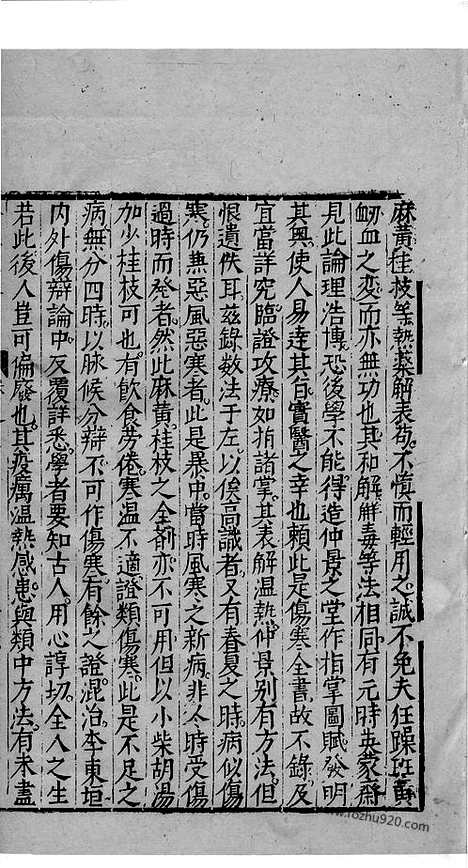 麻黃桂枝等熱藥解表苟不愼而輕用之誠不免夫狂躁班黃
衂血之変而亦無功也其和解觧毒等法相同有元時吳蒙齋
見此論理浩博恐後學不能得造仲景之堂作指掌圖賦發明
其奥使人易達其旨實醫之幸也頼此是傷寒全書故不錄及
宜當詳究臨證攻療如指諸掌其表解温熱仲景别有方法但
恨遺佚耳兹錄数法于左以俟高識者又有春夏之時病似傷
寒仍無惡風惡寒者此是暴中當時風寒之新病非冬時受傷
過時而発者然此麻黃桂枝之全剤亦不可用但以小柴胡湯
加少桂枝可也有飲食劳倦寒温不適證類傷寒此是不足之
病無分四時以脉候分辯不可作傷寒有餘之證混治李東垣
内外傷辯論中反覆詳悉學者要知古人用心諄切全人之生
若此後人豈可偏廢也其疫癘温熱感患與類中方法有未盡
www.fozhu920.com